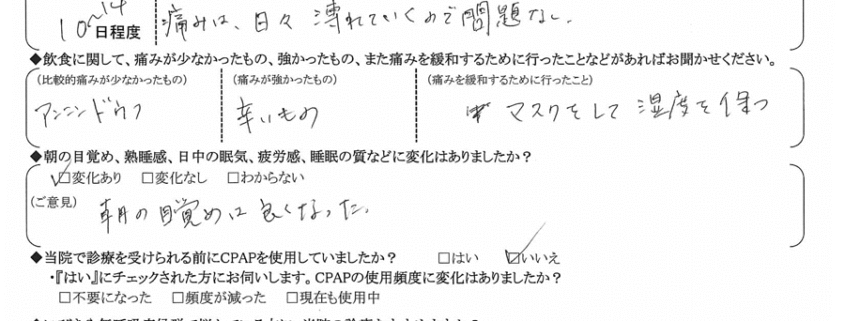 10~14日程度 痛みは、日々薄れていくので問題なし.
◆飲食に関して、痛みが少なかったもの、強かったもの、また痛みを緩和するために行ったことなどがあればお聞かせください。
(比較的痛みが少なかったもの) (痛みが強かったもの) (痛みを緩和するために行ったこと)
アンニンドウフ 辛いもの マスクをして湿度を保つ
◆朝の目覚め、熟睡感、日中の眠気、疲労感、睡眠の質などに変化はありましたか?
☑変化あり □変化なし □わからない
(ご意見) 朝の目覚めは良くなった.
◆当院で診療を受けられる前にCPAPを使用していましたか? □はい ☑いいえ
・『はい』にチェックされた方にお伺いします。CPAPの使用頻度に変化はありましたか?
□不要になった □頻度が減った □現在も使用中